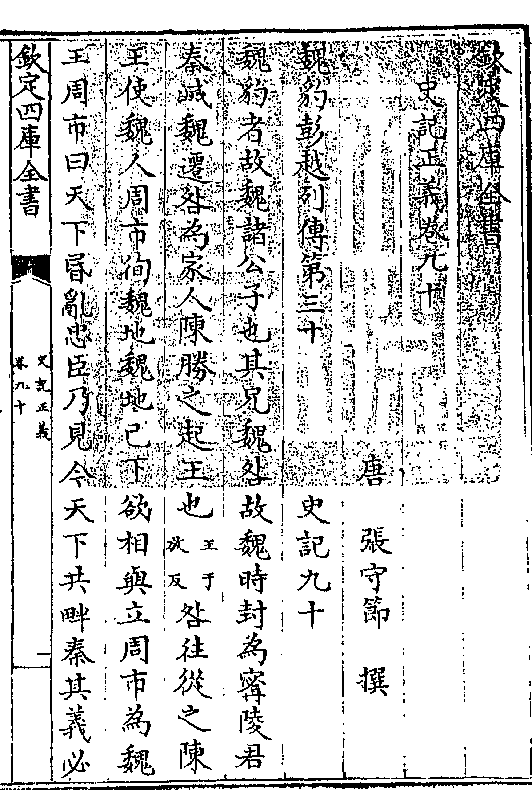 欽定四庫全書
史記正義卷九十
唐 張守節 撰
魏豹彭越列傳第三十 史記九十
魏豹者故魏諸公子也其兄魏咎故魏時封為甯陵君
秦滅魏遷咎為家人陳勝之起王也王于放反咎往從之陳
王使魏人周市徇魏地魏地已下欲相與立周市為魏
王周市曰天下昬亂忠臣乃見今天下共畔秦其義必
欽定四庫全書
史記正義
卷九十
一